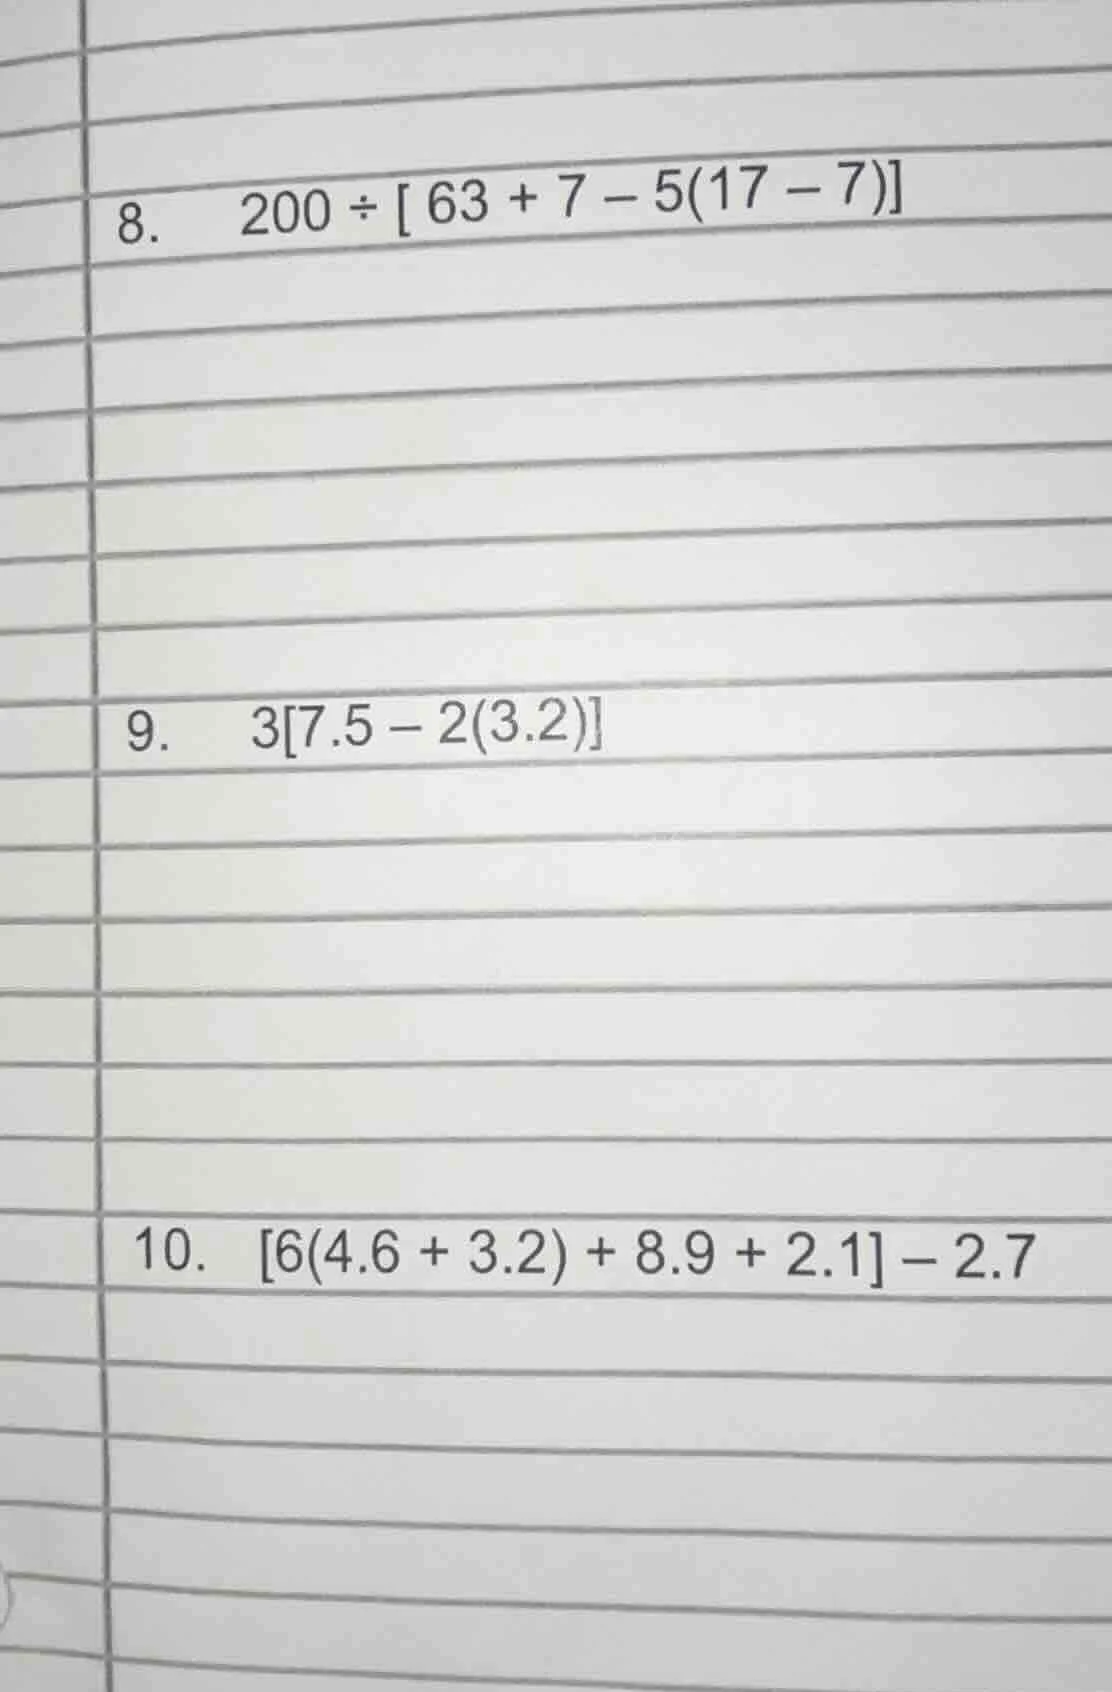 8. 200 ÷ [ 63 + 7 – 5(17 – 7)]
9. 3[7.5 – 2(3.2)]
10. [6(4.6 + 3.2) + 8.9 + 2.1] – 2.7